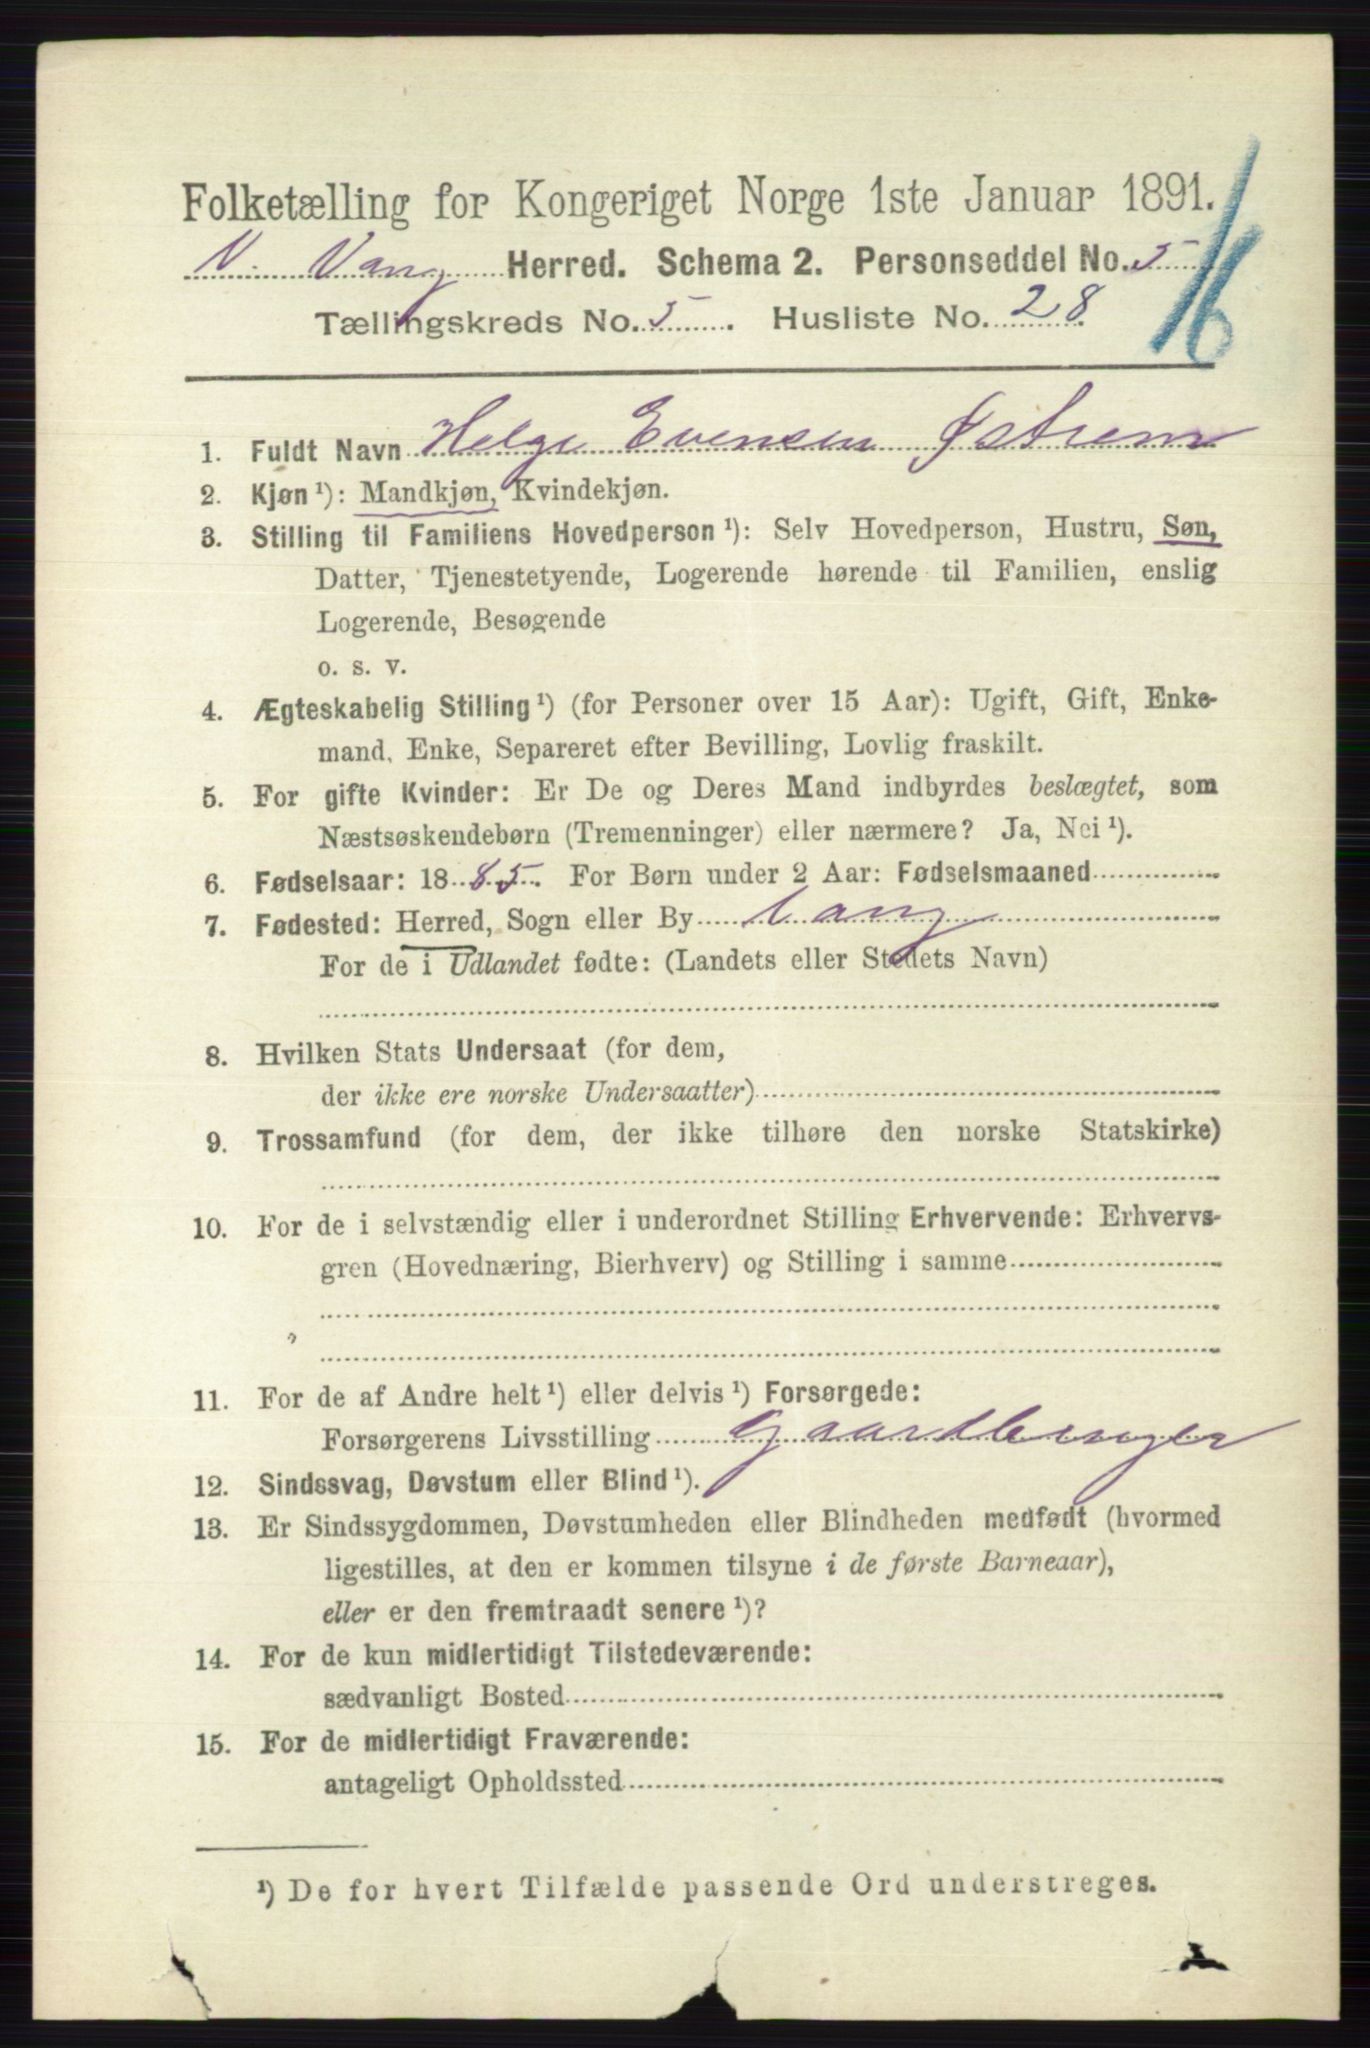 Folketælling for Kongeriget Norge 1ste Januar 1891.
16
V. Vang Herred. Schema 2. Personseddel No. 5
Tællingskreds No. 5. Husliste No. 28.
1. Fuldt Navn Helge Evensen Østrem
2. Kjøn ¹): Mandkjøn, Kvindekjøn.
3. Stilling til Familiens Hovedperson ¹): Selv Hovedperson, Hustru, Søn,
Datter, Tjenestetyende, Logerende hørende til Familien, enslig
Logerende, Besøgende
o. s. v.
4. Ægteskabelig Stilling ¹) (for Personer over 15 Aar): Ugift, Gift, Enke-
mand, Enke, Separeret efter Bevilling, Lovlig fraskilt.
5. For gifte Kvinder: Er De og Deres Mand indbyrdes beslægtet, som
Næstsøskendebørn (Tremenninger) eller nærmere? Ja, Nei ¹).
6. Fødselsaar: 1885. For Børn under 2 Aar: Fødselsmaaned
7. Fødested: Herred, Sogn eller By Vang
For de i Udlandet fødte: (Landets eller Stedets Navn)
8. Hvilken Stats Undersaat (for dem,
der ikke ere norske Undersaatter)
9. Trossamfund (for dem, der ikke tilhøre den norske Statskirke)
10. For de i selvstændig eller i underordnet Stilling Erhvervende: Erhvervs-
gren (Hovednæring, Bierhverv) og Stilling i samme
11. For de af Andre helt ¹) eller delvis ¹) Forsørgede:
Forsørgerens Livsstilling Gaardbruger
12. Sindssvag, Døvstum eller Blind ¹).
13. Er Sindssygdommen, Døvstumheden eller Blindheden medfødt (hvormed
ligestilles, at den er kommen tilsyne i de første Barneaar),
eller er den fremtraadt senere ¹)?
14. For de kun midlertidigt Tilstedeværende:
sædvanligt Bosted
15. For de midlertidigt Fraværende:
antageligt Opholdssted
¹) De for hvert Tilfælde passende Ord understreges.